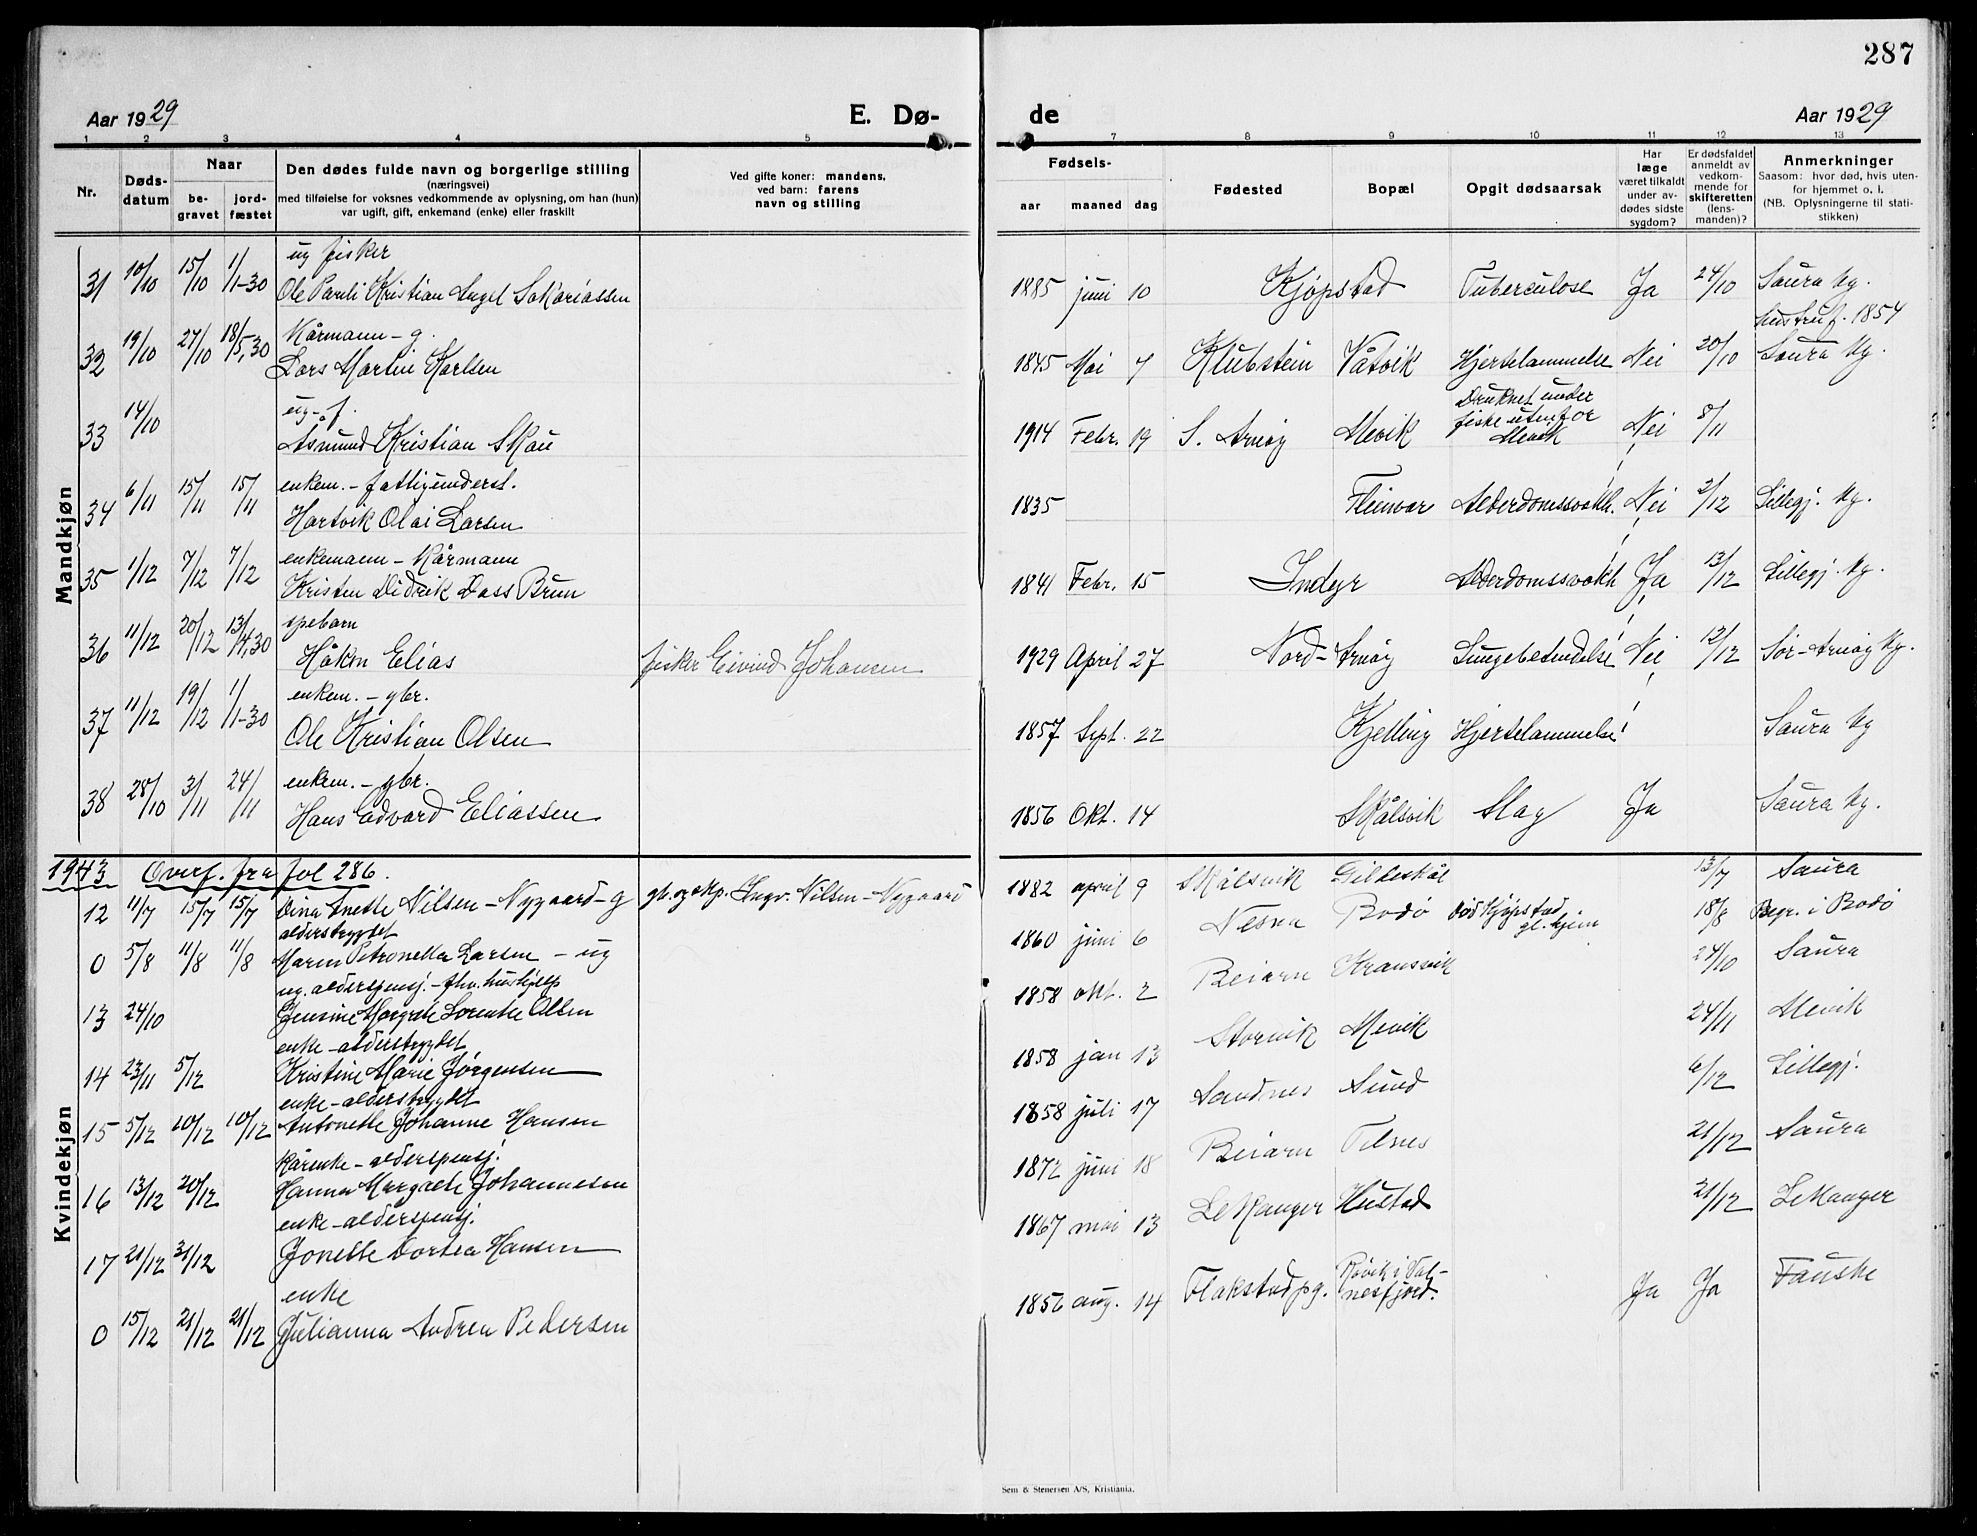 287
Aar 1929 E. Dø- de Aar 1929
1 2 3 4 5 7 8 9 10 11 12 13
Nr. Døds-datum Naar be-gravet jord-fæstet
Den dødes fulde navn og borgerlige stilling
(næringsvei)
med tilføielse for voksnes vedkommende av oplysning, om han (hun)
var ugift, gift, enkemand (enke) eller fraskilt
Ved gifte koner: mandens,
ved barn: farens
navn og stilling
Fødsels- aar maaned dag
Fødested Bopæl Opgit dødsaarsak
Har læge været tilkaldt under av-dødes sidste sygdom?
Er dødsfaldet anmeldt av vedkom-mende for skifteretten (lens-manden)?
Anmerkninger
Saasom: hvor død, hvis uten-for hjemmet o. l.
(NB. Oplysningerne til stati-stikken)
Mandkjøn
ug fisker
31 10/10 15/10 1/1-30 Ole Pauli Kristian Angel Sakariassen 1885 juni 10 Kjøpstad Tuberculose Ja 24/10 Saura kg.
Kårmann - g. hustru f. 1854
32 19/10 27/10 18/5,30 Lars Martin Karlsen 1845 Mai 7 Klubstein Våtvik Hjertelammelse Nei 20/10 Saura kg.
ug. f.
33 14/10 Asmund Kristian Skau 1914 Febr. 19 S. Arnøy Mevik Druknet under fiske utenfor Mevik Nei 8/11
enkem. - fattigunderst.
34 6/11 15/11 15/11 Hartvik Olai Larsen 1835 Fleinvær Alderdomssvakh. Nei 2/12 Lillegj. kg.
enkemann - Kårmann
35 1/12 7/12 7/12 Kristen Didrik Dass Brun 1841 Febr. 15 Indyr Alderdomssvakh Ja 13/12 Lillegj. kg.
spebarn
36 11/12 20/12 13/4,30 Håkon Elias fisker Eivind Johansen 1929 April 27 Nord-Arnøy Lungebetendelse Nei 12/12 Sør-Arnøy kg.
enkem. - gbr.
37 11/12 19/12 1/1-30 Ole Kristian Olsen 1857 Sept. 22 Kjelling Hjertelammelse Saura kg
enkem. - gbr.
38 28/10 3/11 24/11 Hans Edvard Eliassen 1856 Okt. 14 Skålsvik Slag Ja Saura kg.
1943 Overf. fra fol 286.
Kvindekjøn
12 11/7 15/7 15/7 Dina Anette Nilsen - Nygaard - g gb. og skp. Ingv. Nilsen - Nygaard 1882 april 9 Skålsvik Gildeskål 13/7 Saura
alderstrygdet
0 5/8 11/8 11/8 Maren Petronella Larsen - ug 1860 juni 6 Nesna Bodø død Kjøpstad gl.hjem 18/8 Begr. i Bodø
ug. alderspensj. - fhv. hushjelp
13 24/10 Jensine Margrete Lorentze Olsen 1858 okt. 2 Beiarn Skansvik 24/10 Saura
enke - alderstrygdet
14 23/11 5/12 Kristine Marie Jørgensen 1858 jan 13 Storvik Mevik 24/11 Mevik
enke - alderstrygdet
15 5/12 10/12 10/12 Antonette Johanne Hansen 1858 juli 17 Sandnes Sund 6/12 Lillegj.
Kårenke - alderspensj.
16 13/12 20/12 Hanna Margrete Johannesen 1872 juni 18 Beiarn Telnes 21/12 Saura
enke - alderspensj.
17 21/12 31/12 Jonette Dortea Hansen 1867 mai 13 Lekanger Hustad 21/12 Lekanger
enke
0 15/12 21/12 21/12 Julianna Andrea Pedersen 1856 aug. 14 Flakstad pg. Røvik i Val-nesfjord. Ja Ja Fauske
Sem & Stenersen A/S, Kristiania.